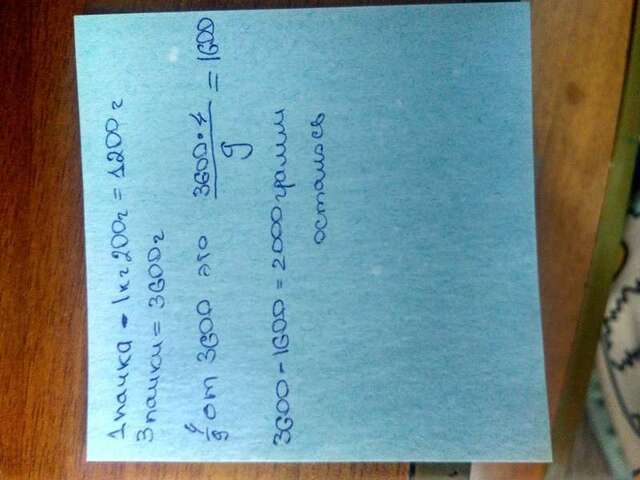 1 пачка - 1 кг 200 г = 1200 г
3 пачки = 3600 г
4/9 от 3600 это 3600 • 4 / 9 = 1600
3600 - 1600 = 2000 грамм
осталось